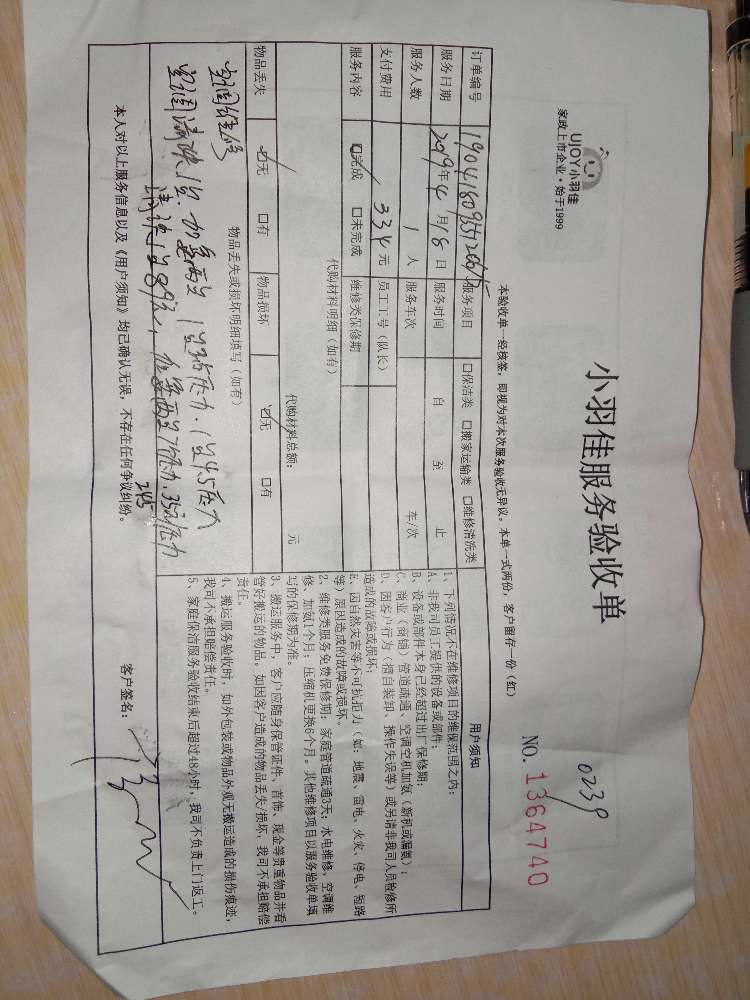 UJOY小羽佳
家政上市企业·始于1999
小羽佳服务验收单
0239
NO. 1364740
本验收单一经核签，即视为对本次服务验收无异议。本单一式两份，客户留存一份（红）
订单编号 服务项目 □保洁类 □搬家运输类 □维修清洗类
服务日期 2019年4月18日 服务时间 自 至 止
服务人数 1人 服务车次 车/次
支付费用 334元 员工工号（队长）
服务内容 ☑完成 □未完成 维修类保修期
代购材料明细（如有）
代购材料总额： 元
物品丢失 ☑无 □有 物品损坏 ☑无 □有
物品丢失或损坏明细填写（如有）
空调维修
空调清洗1台 加氨两台
清洗1台89元
245
本人对以上服务信息以及《用户须知》均已确认无误，不存在任何争议纠纷。
客户签名：
用户须知
1、下列情况不在维修项目的维保范围之内：
A、非我司员工提供的设备或部件；
B、设备或部件本身已经超过出厂保修期；
C、商业（商铺）管道疏通、空调空机加氨（新机或漏氨）；
D、因客户行为（擅自装卸、操作失误等）或另请非我司人员检修所
造成的故障或损坏；
E、因自然灾害等不可抗拒力（如：地震、雷电、火灾、停电、短路
等）原因造成的故障或损坏。
2、维修类服务免费保修期：家庭管道疏通3天；水电维修、空调维
修、加氨1个月；压缩机更换6个月。其他维修项目以服务验收单填
写的保修期为准。
3、搬运服务中，客户应随身保管证件、首饰、现金等贵重物品并看
管好搬运的物品。如因客户造成的物品丢失/损坏，我司不承担赔偿
责任。
4、搬运服务验收时，如外包装或物品外观无搬运造成的损伤痕迹，
我司不承担赔偿责任。
5、家庭保洁服务验收结束后超过48小时，我司不负责上门返工。